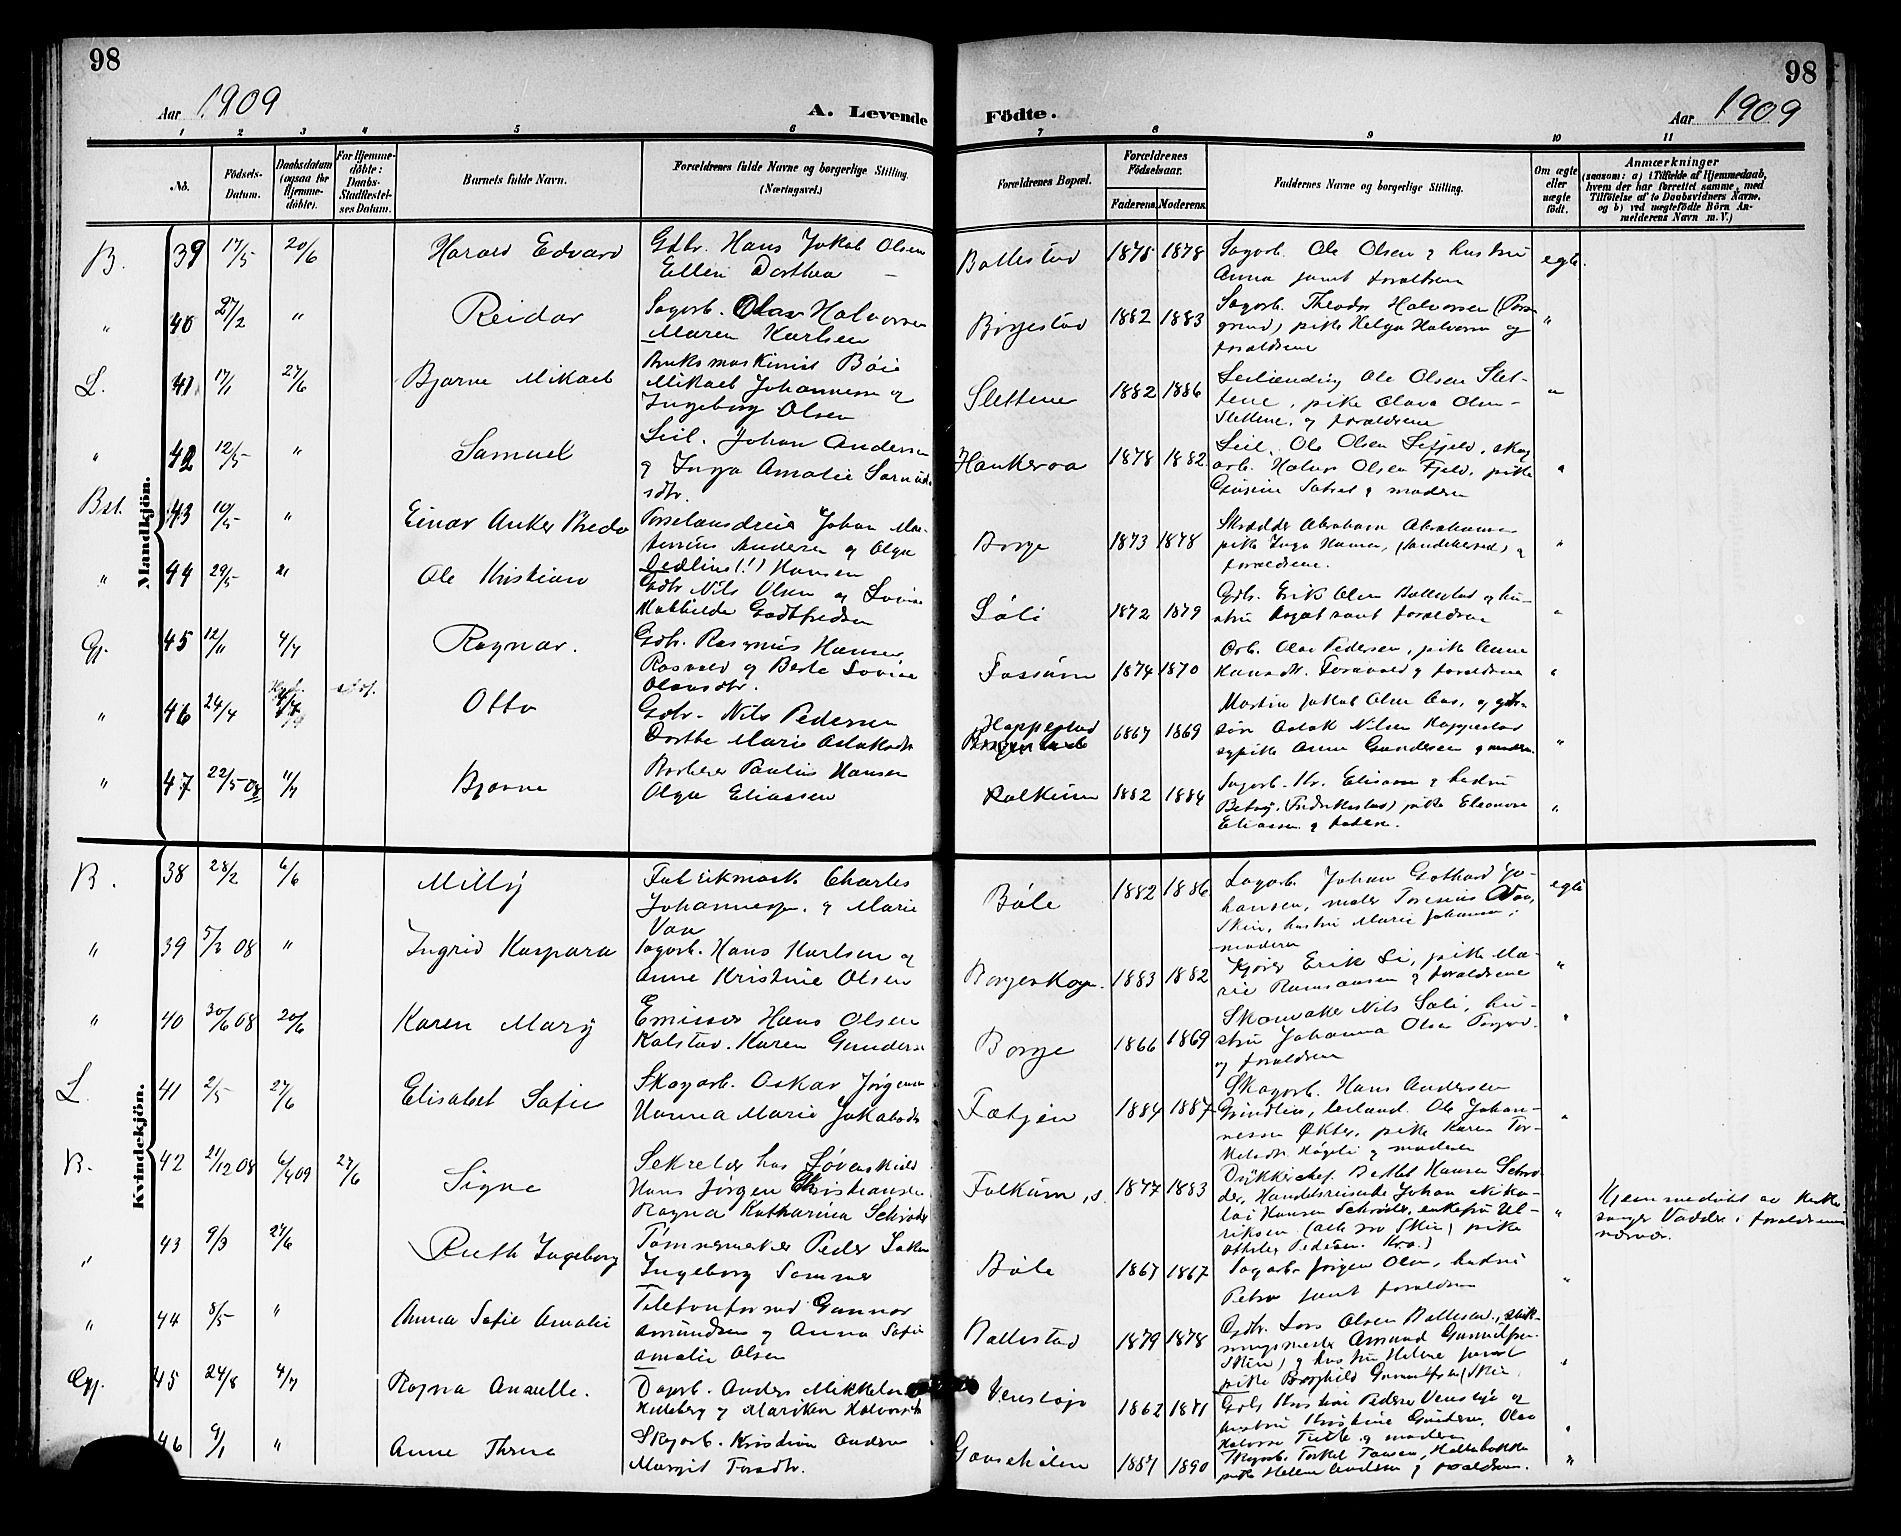 98
98
Aar 1909
A. Levende
Födte.
Aar 1909
1 2 3 4 5 6 7 8 9 10 11
No.
Födsels-Datum.
Daabsdatum (ogsaa for Hjemme-döbte).
For Hjemme-döbte: Daabs-Stadfæstel-ses Datum.
Barnets fulde Navn.
Forældrenes fulde Navne og borgerlige Stilling. (Næringsvei.)
Forældrenes Bopæl.
Forældrenes Födselsaar.
Faderens. Moderens.
Faddernes Navne og borgerlige Stilling.
Om ægte eller uægte födt.
Anmærkninger
(saasom: a) i Tilfælde af Hjemmedaab,
hvem der har forrettet samme, med
Tilföielse af to Daabsvidners Navne.
og b) ved uægtefödte Börn An-
melderens Navn m. V.)
Mandkjön.
B. 39 17/5 20/6 Harald Edvard Gdbr. Hans Jakob Olsen
Ellen Dorthea Ballestad 1875 1878 Sagarb. Ole Olsen og hustru
Anna samt forældrene egte
" 40 27/2 " Reidar Sagarb. Olav Halvorsen
Maren Karlsen Borgestad 1882 1883 Sagarb. Theodor Halvorsen (Pors
grund), pike Helga Halvorsen og
forældrene "
L. 41 17/1 27/6 Bjarne Mikael Bruksmaskinist Bøie
Mikael Johannessen og
Ingeborg Olsen Slettene 1882 1886 Leilænding Ole Olsen Slet-
tene, pike Olava Olsen
Slettene, og forældrene "
" 42 12/5 " Samuel Leil. Johan Andersen
og Inga Amalie Samuels
dtr. Haukeraa 1878 1882 Leil. Ole Olsen, skog
arb. Halvor Olsen Fjeld, pike
og moderen "
Bst. 43 10/5 " Einar Anker Bredo Porselænsdreier Johan Mar-
tinius Andersen og Olga
Dedlius (!) Hansen Borge 1873 1878 Skrædder Abraham Abrahamsen
pike Inga Hansen, og
forældrene. "
" 44 29/5 " Ole Kristian Gdbr. Nils Olsen og Lovise
Mathilde Godtfredsen Søli 1872 1879 Gdbr. Erik Olsen Ballestad og hu-
stru samt forældrene "
Gj. 45 12/11 4/7 Ragnar. Gdbr. Rasmus Hansen
Rasvald og Berte Lovise
Olavsdtr. Fossum 1874 1870 Arb. Olav Pedersen, pike Anne
Hansdtr. og forældrene "
" 46 24/4 4/7 Otto Gdbr. Nils Pedersen
Dorthe Marie Aslaksdtr Hoppestad 1867 1869 Martin Jakob Olsen Aas, og gdbr-
søn Aslak Nilsen Hoppestad
sypike Anne Gundersen og moderen "
" 47 22/5 08 11/7 Bjarne Barberer Paulus Hansen
Olga Eliassen Falkum 1882 1884 Sagarb. Kr. Eliassen og hustru
Betsy, (Fredrikstad) pike Eleonora
Eliassen og faderen. "
Kvindekjön.
B. 38 28/2 6/6 Milly Fabrikmask. Charles
Johannessen. og Marie
Vaa Bøle 1882 1886 Sagarb. Johan Gothard Jo-
hansen, maler Torenius Vaa,
Skien, hustru Marie Johansen,
moderen egte
" 39 5/3 08 " Ingrid Kaspara Sagarb. Hans Karlsen og
Anne Kristine Olsen Borgeskogen. 1883 1882 Kjører Erik Li, pike Ma-
rie Rasmussen og forældrene "
" 40 30/6 08 20/6 Karen Mary Emissær Hans Olsen
Kolstad. Karen Gundersen Borge 1866 1869 Skomaker Nils Søli, hu-
stru Johanna Olsen
og forældrene "
L. 41 2/5 27/6 Elisabet Sofie Skogarb. Oskar Jørgensen
Hanna Marie Jakobsdtr Fætjen 1884 1887 Skogarb. Hans Andersen
Grindlia, leiland. Ole Johan-
nessen Økter, pike Karen Tor-
og moderen "
B. 42 21/12 08 6/4 09 27/6 Signe Sekretær hos Løvenskiold
Hans Jørgen Christiansen
Ragna Katharina Schrøder Falkum, s. 1877 1883 Dykkerchef. Detlef Hansen Schrø-
der, Handelsreisende Johan Niko-
lai Hansen Schrøder, enkefru Ul-
riksen (alle fra Skien) pike
Ottilie Pedersen. Kra.) "
Hjemmedøbt av kirke-
sanger Vadder i forældrenes
nærvær.
" 43 9/3 27/6 Ruth Ingeborg Tømmermerker Peder
Ingeborg Sommer Bøle 1867 1867 Sagarb. Jørgen Olsen, hustru
Petra samt forældrene "
" 44 8/5 " Anna Sofie Amalie Telefonformand Gunnar
Amundsen og Anna Sofie
Amalie Olsen Ballestad 1879 1878 Gdbr. Lars Olsen Ballestad,
Amund Gunnulfsen
Skien) og hustru Helene samt
pike Borghild Gunnulfsen (Skien "
Gj. 45 24/8 4/7 Ragna Anselle. Dagarb. Anders Mikkelsen
og Mariken Halvorsdtr Venstøp 1862 1871 Gdbr. Kristian Pedersen Venstøp og
hustru Kristine Gundersen, Olav
Halvorsen og moderen "
46 9/1 " Anne Thrine Skogarb. Kristian Andersen
Margit Torsdtr. Gaaseholen 1887 1890 Skogarb. Torkel Hollabakken
pike Helene og forældrene. "